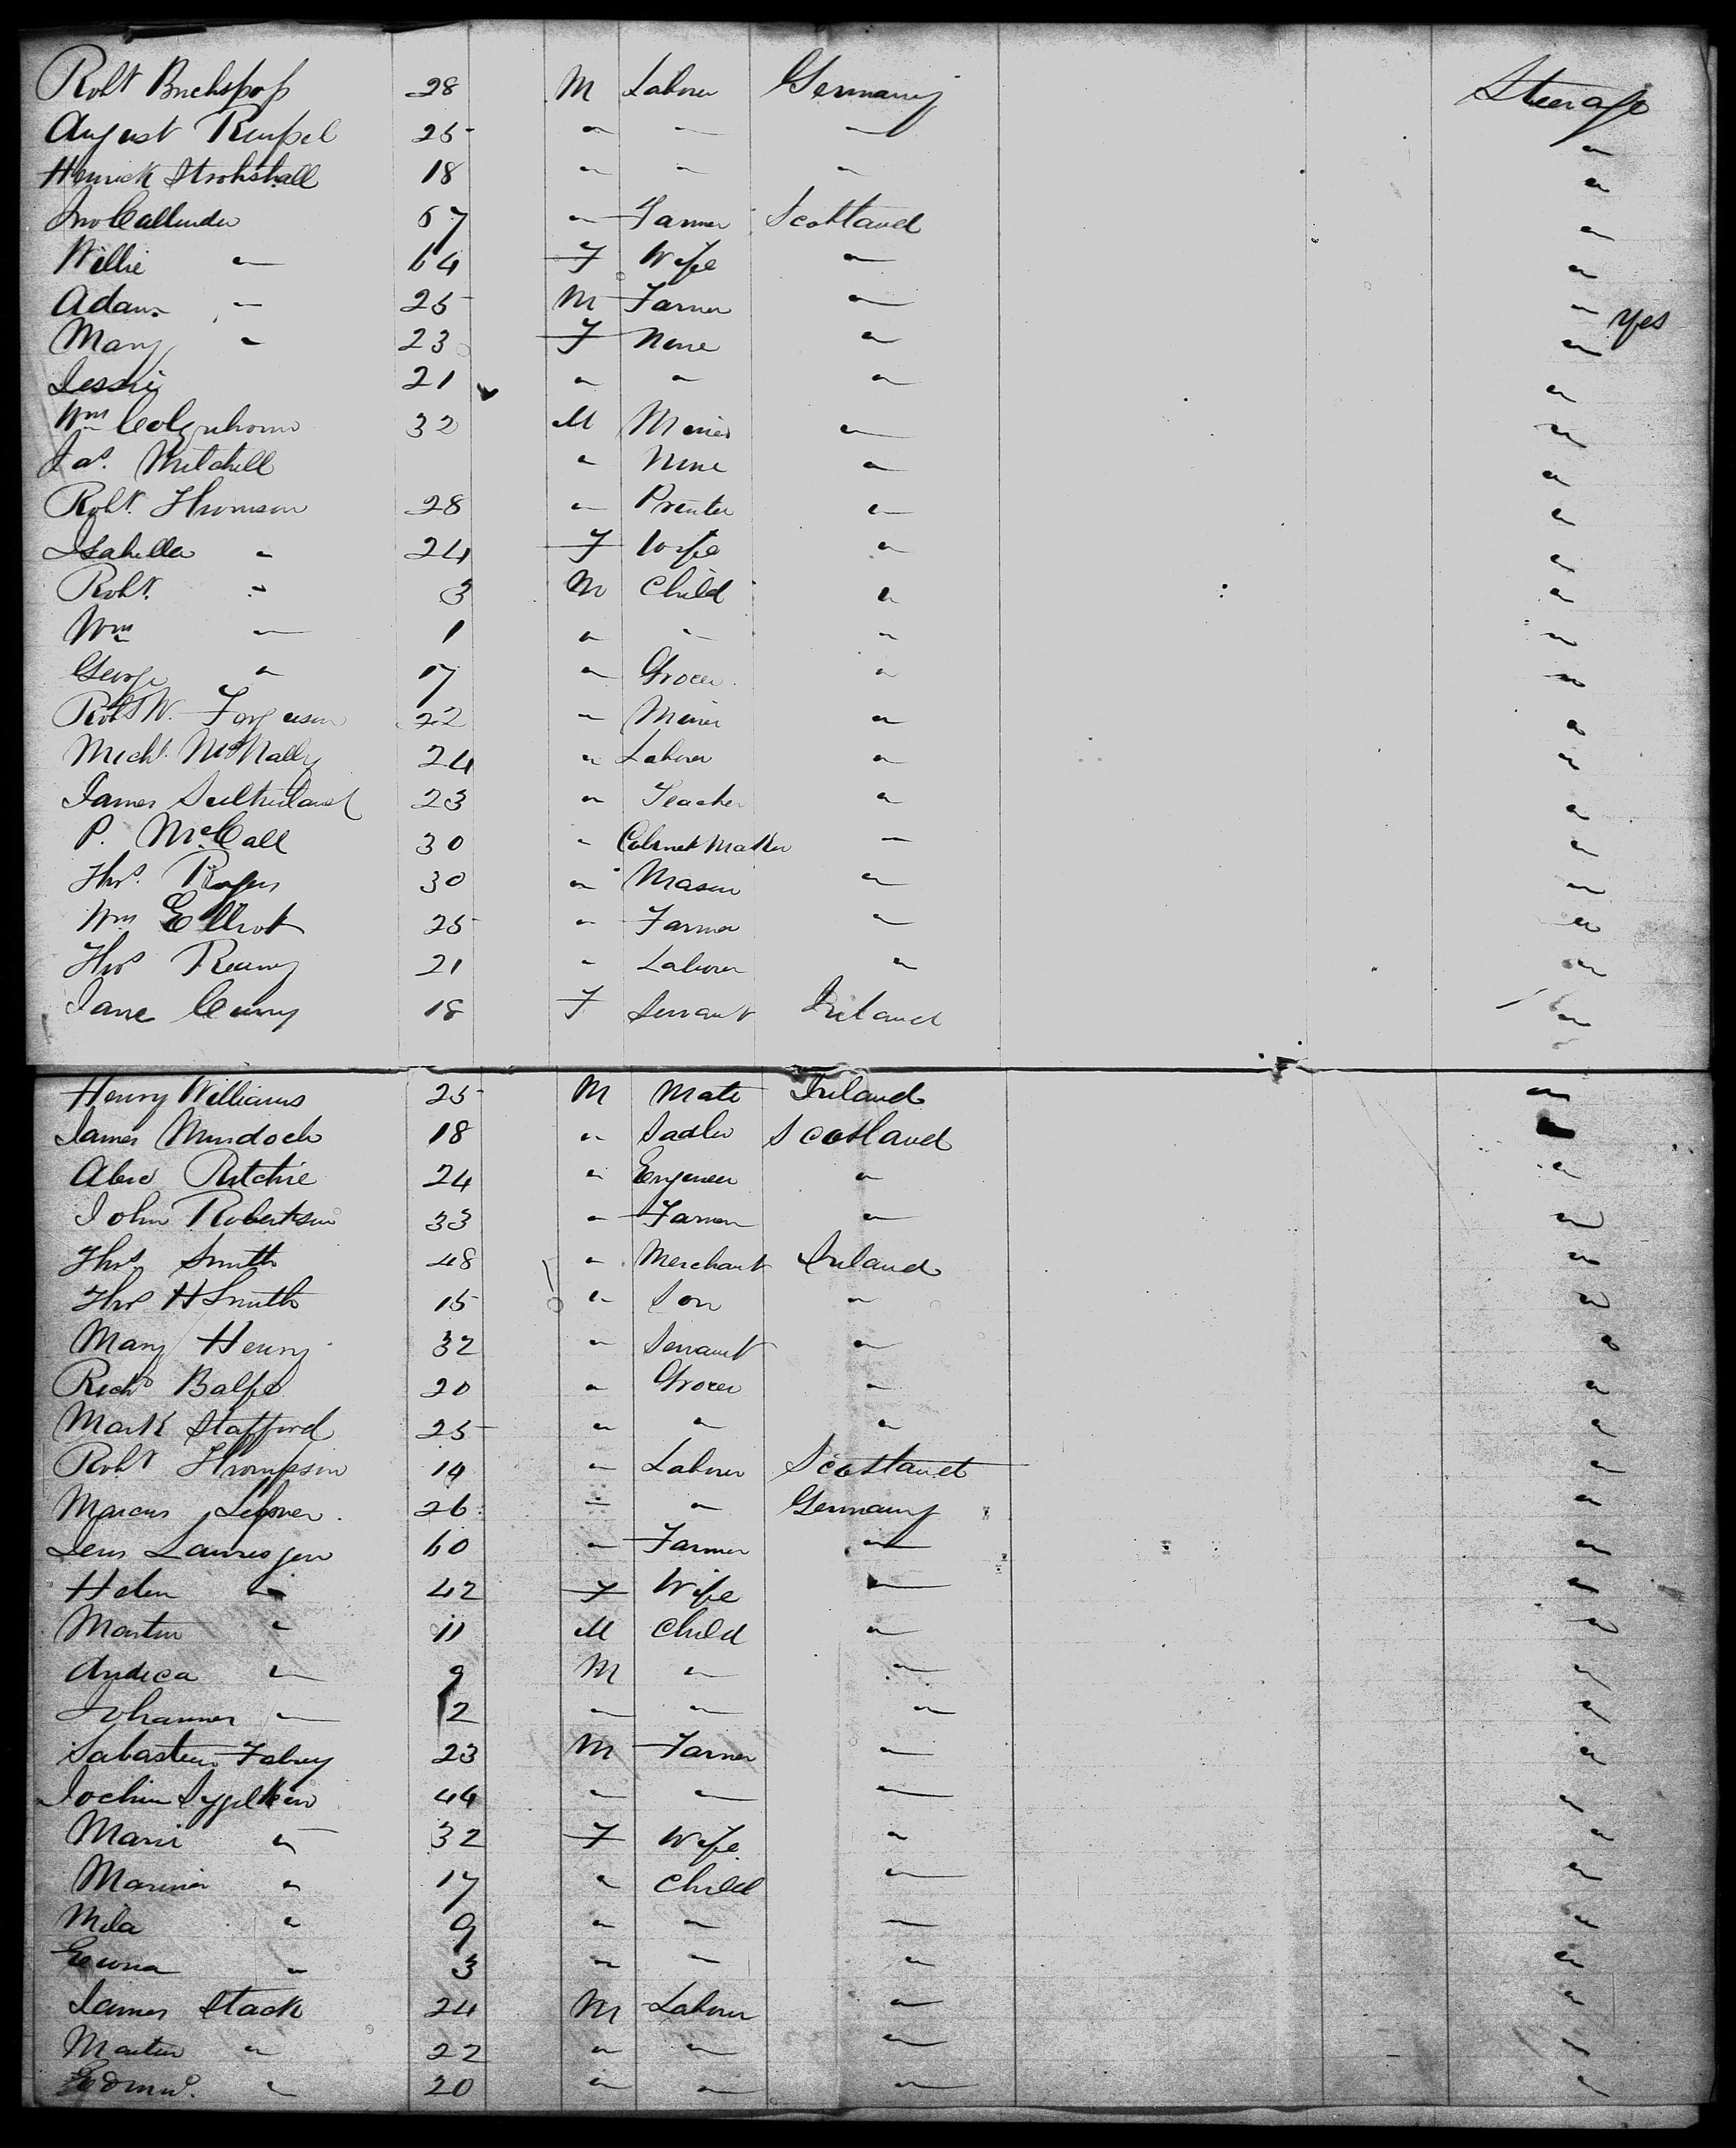 Robt Buchspop 28 M Laborer Germany Steerage
August Rempel 25 " " " "
Henrick Strohshall 18 " " " "
Jno Callender 67 " Farmer Scotland "
Willie " 64 F Wife " "
Adam " 25 M Farmer " " Yes
Mary " 23 F None " "
Jessie 21 " " " "
Wm Colquhoun 32 M Miner " "
Jas. Mitchell " None " "
Robt. Thomson 28 " Printer " "
Isabella " 24 F Wife " "
Robt. " 3 M Child " "
Wm " 1 " " " "
George " 17 " Grocer " "
Robt W. Ferguson 22 " Miner " "
Michl. McNally 24 " Laborer " "
James Sutherland 23 " Teacher " "
P. McCall 30 " Cabinet Maker " "
Thos. Rogers 30 " Mason " "
Wm Elliot 25 " Farmer " "
Thos Reany 21 " Laborer " "
Jane Curry 18 F Servant Ireland "
Henry Williams 25 M Mate Ireland "
James Murdoch 18 " Sadler Scotland
Alexr Ritchie 24 " Engineer " "
John Robertson 33 " Farmer " "
Thos. Smith 48 " Merchant Ireland "
Thos H Smith 15 " Son " "
Mary Henry 32 " Servant " "
Richd Balfe 20 " Grocer " "
Mark Stafford 25 " " " "
Robt Thompson 19 " Laborer Scotland "
Marcus 26 " " Germany "
Jens Lauresgen 60 " Farmer " "
Helen " 42 F Wife " "
Martin " 11 M Child " "
Andrea " 9 M " " "
Johannes " 2 " " " "
Sabastien Fabry 23 M Farmer " "
Jochim Sygelken 44 " " " "
Marie " 32 F Wife " "
Marina " 17 " Child " "
Mila " 9 " " " "
Emma " 3 " " " "
James Stack 24 M Laborer " "
Martin " 22 " " " "
Edmd. " 20 " " " "